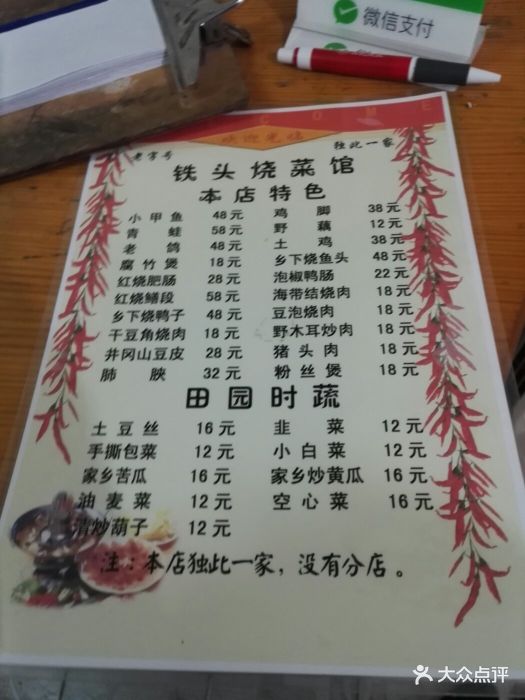 微信支付
COME
欢迎光临
老字号
独此一家
铁头烧菜馆
本店特色
小甲鱼 48元 鸡脚 38元
青蛙 58元 野藕 12元
老鸽 48元 土鸡 38元
腐竹煲 18元 乡下烧鱼头 48元
红烧肥肠 28元 泡椒鸭肠 22元
红烧鳝段 58元 海带结烧肉 18元
乡下烧鸭子 48元 豆泡烧肉 18元
干豆角烧肉 18元 野木耳炒肉 18元
井冈山豆皮 28元 猪头肉 18元
肺腴 32元 粉丝煲 18元
田园时蔬
土豆丝 16元 韭菜 12元
手撕包菜 12元 小白菜 12元
家乡苦瓜 16元 家乡炒黄瓜 16元
油麦菜 12元 空心菜 16元
清炒葫子 12元
注：本店独此一家，没有分店。
大众点评